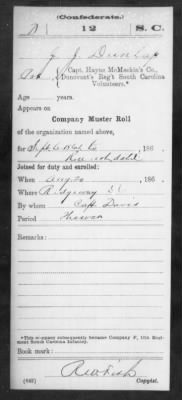 (Confederate.)
D 12 S.C.
J. J. Dunlap
Capt. Hayne McMeekin's Co.,
Donovant's Reg't South Carolina
Volunteers.*
Age years.
Appears on
Company Muster Roll
of the organization named above,
for 186 .
Joined for duty and enrolled:
When Aug 20 186 .
Where Ridgeway S C
By whom Capt Davis
Period
Remarks:
*This company subsequently became Company F, 12th Regiment South Carolina Infantry.
Book mark:
(642) Copyist.